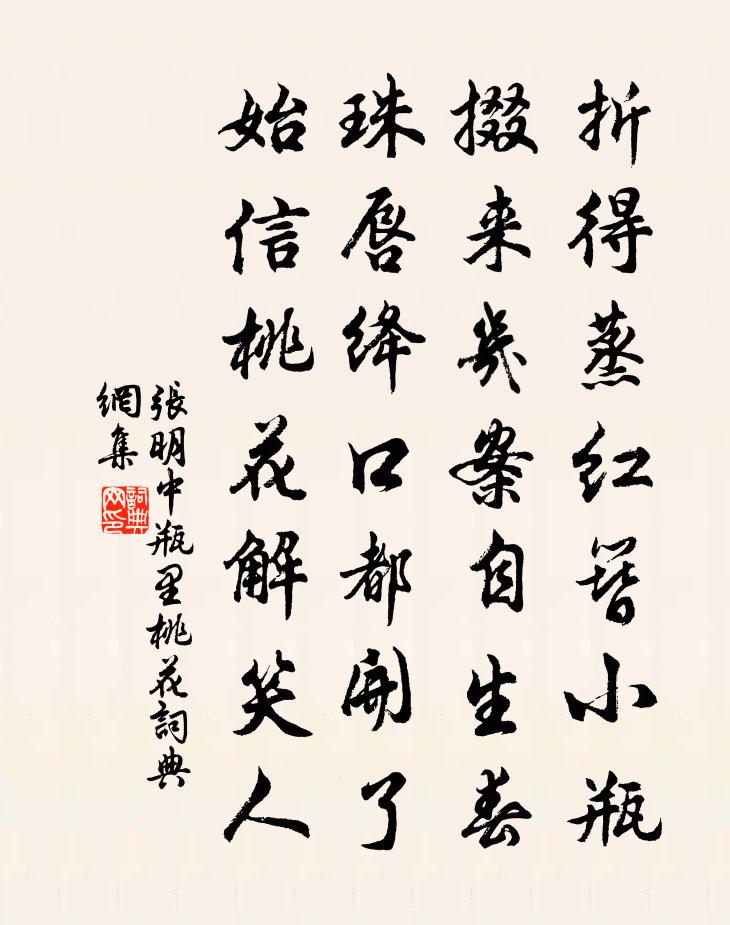 折得蒸红簪小瓶
掇来几案自生春
珠唇绛口都開了
始信桃花解笑人
張明中瓶里桃花詞典
網集
詞典
网印